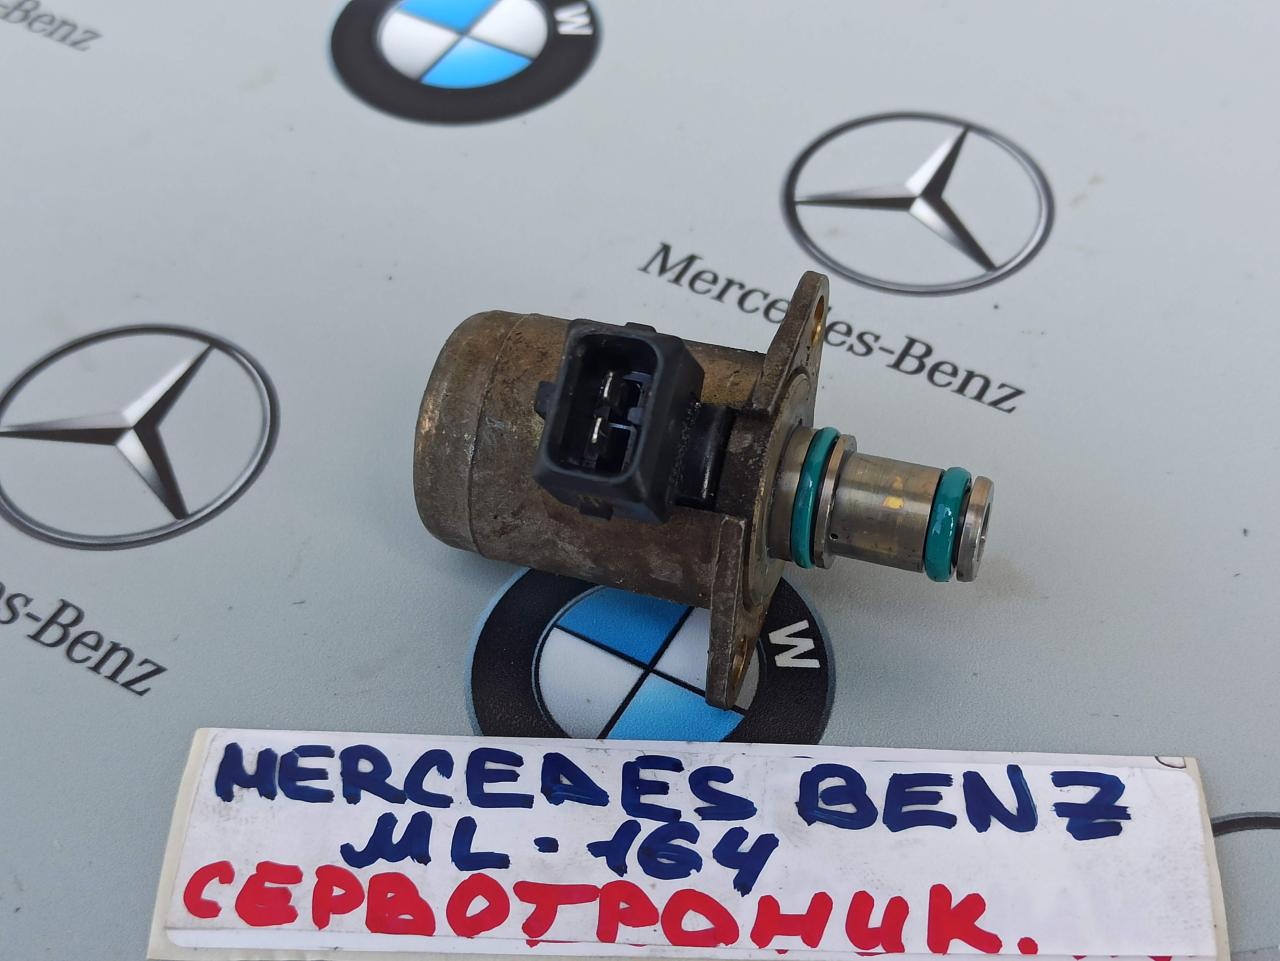 -Benz
W
Mercedes-Benz
es-Benz
W
MERCEDES BENZ
ML-164
СЕРВОТРОНИК.